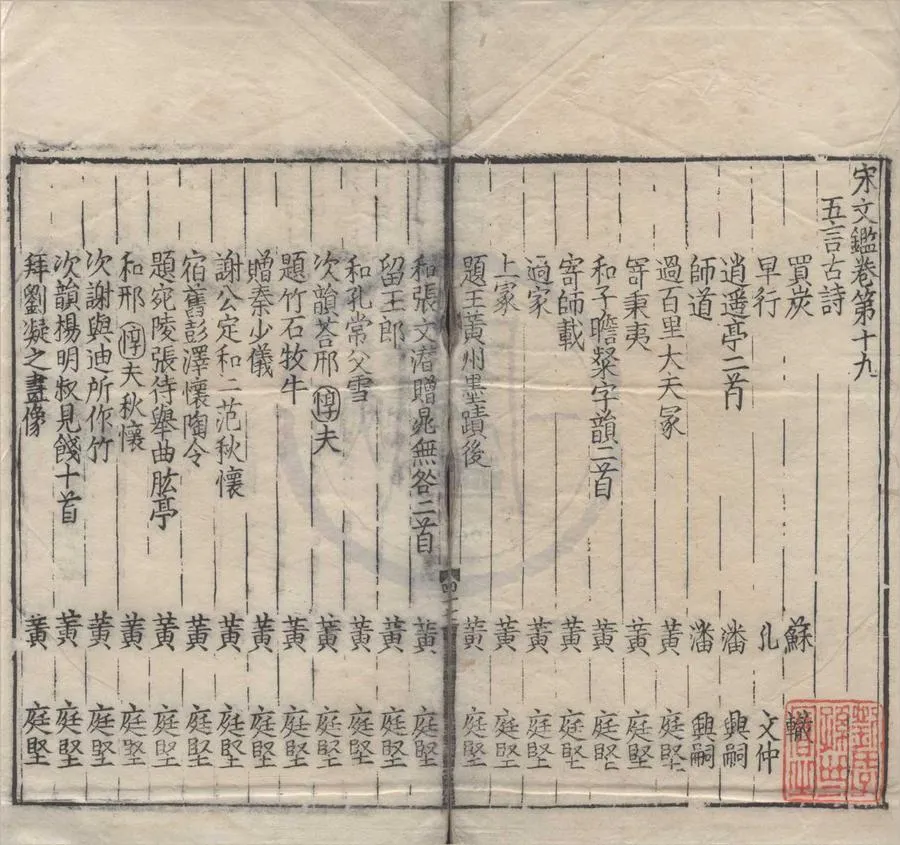 宋文鑑卷第十九
五言古詩
買炭 蘇轍
早行 孔文仲
逍遥亭二首 潘興嗣
師道 潘興嗣
過百里大夫冢 黃庭堅
寄秉夷 黃庭堅
和子瞻粲字韻二首 黃庭堅
寄師載 黃庭堅
過家 黃庭堅
上冢 黃庭堅
題王黃州墨蹟後 黃庭堅
和張文潛贈晁無咎二首 黃庭堅
留王郎 黃庭堅
和孔常父雪 黃庭堅
次韻荅邢惇夫 黃庭堅
題竹石牧牛 黃庭堅
贈秦少儀 黃庭堅
謝公定和二范秋懷 黃庭堅
宿舊彭澤懷陶令 黃庭堅
題宛陵張待舉曲肱亭 黃庭堅
和邢惇夫秋懷 黃庭堅
次謝與迪所作竹 黃庭堅
次韻楊明叔見餞十首 黃庭堅
拜劉凝之畫像 黃庭堅